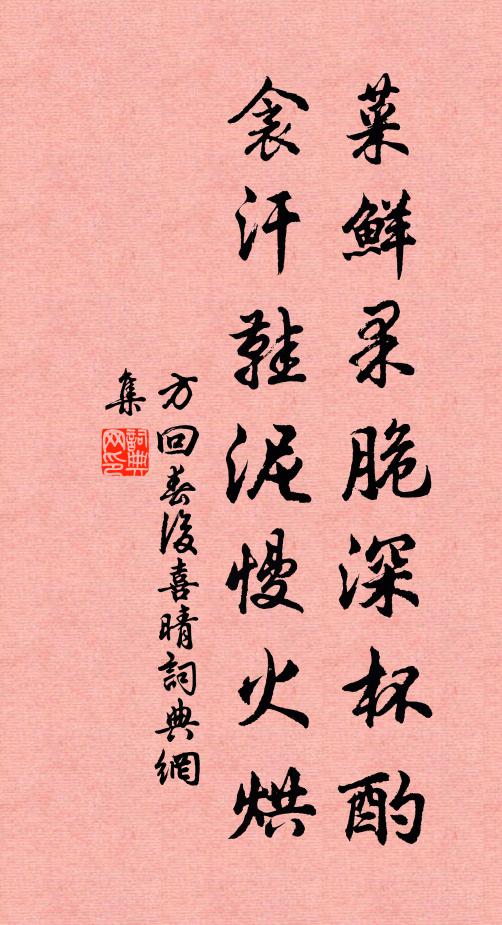 菜鮮果脆深杯酌
衾汗鞋泥慢火烘
方回春後喜晴詞典網
集
詞典网印